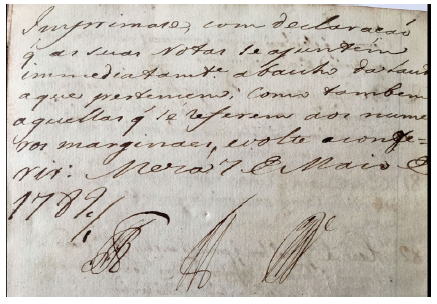 Imprimase, com declaração
q̃ as suas Notas se ajuntem
immediatamte abaicho da
a que pertencem, como tambem
aquellas q̃ se referem aos nume
ros marginaes, e volte a confe-
rir: Meza 7 E Maio E
1789.